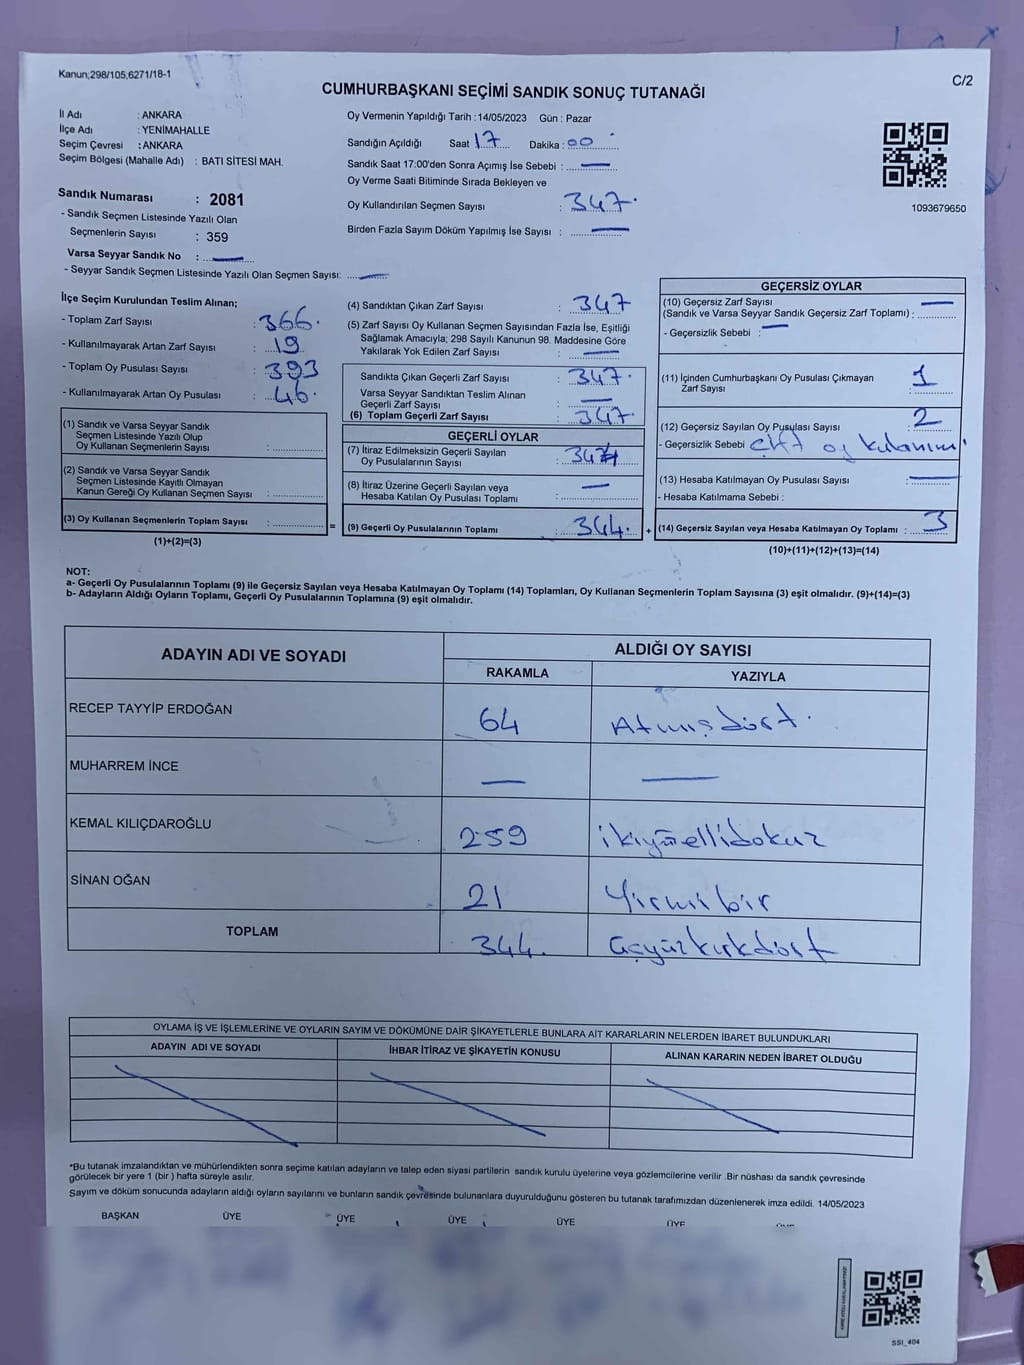 Kanun;298/105;6271/18-1
C/2
CUMHURBAŞKANI SEÇİMİ SANDIK SONUÇ TUTANAĞI
İl Adı : ANKARA
İlçe Adı : YENİMAHALLE
Seçim Çevresi : ANKARA
Seçim Bölgesi (Mahalle Adı) : BATI SİTESİ MAH.
Oy Vermenin Yapıldığı Tarih : 14/05/2023 Gün : Pazar
Sandığın Açıldığı Saat 17 Dakika : 00
Sandık Saat 17:00'den Sonra Açımış İse Sebebi : —
Oy Verme Saati Bitiminde Sırada Bekleyen ve
Oy Kullandırılan Seçmen Sayısı : 347.
Birden Fazla Sayım Döküm Yapılmış İse Sayısı : —
1093679650
Sandık Numarası : 2081
- Sandık Seçmen Listesinde Yazılı Olan
Seçmenlerin Sayısı : 359
Varsa Seyyar Sandık No : —
- Seyyar Sandık Seçmen Listesinde Yazılı Olan Seçmen Sayısı: —
İlçe Seçim Kurulundan Teslim Alınan;
- Toplam Zarf Sayısı : 366.
- Kullanılmayarak Artan Zarf Sayısı : 19
- Toplam Oy Pusulası Sayısı : 393
- Kullanılmayarak Artan Oy Pusulası : 46.
(1) Sandık ve Varsa Seyyar Sandık
Seçmen Listesinde Yazılı Olup
Oy Kullanan Seçmenlerin Sayısı :
(2) Sandık ve Varsa Seyyar Sandık
Seçmen Listesinde Kayıtlı Olmayan
Kanun Gereği Oy Kullanan Seçmen Sayısı :
(3) Oy Kullanan Seçmenlerin Toplam Sayısı : =
(1)+(2)=(3)
(4) Sandıktan Çıkan Zarf Sayısı : 347
(5) Zarf Sayısı Oy Kullanan Seçmen Sayısından Fazla İse, Eşitliği
Sağlamak Amacıyla; 298 Sayılı Kanunun 98. Maddesine Göre
Yakılarak Yok Edilen Zarf Sayısı : —
Sandıkta Çıkan Geçerli Zarf Sayısı : 347.
Varsa Seyyar Sandıktan Teslim Alınan
Geçerli Zarf Sayısı : —
(6) Toplam Geçerli Zarf Sayısı : 347.
GEÇERLİ OYLAR
(7) İtiraz Edilmeksizin Geçerli Sayılan
Oy Pusulalarının Sayısı : 344
(8) İtiraz Üzerine Geçerli Sayılan veya
Hesaba Katılan Oy Pusulası Toplamı : —
(9) Geçerli Oy Pusulalarının Toplamı : 344. +
GEÇERSİZ OYLAR
(10) Geçersiz Zarf Sayısı
(Sandık ve Varsa Seyyar Sandık Geçersiz Zarf Toplamı) : —
- Geçersizlik Sebebi : —
(11) İçinden Cumhurbaşkanı Oy Pusulası Çıkmayan
Zarf Sayısı : 1
(12) Geçersiz Sayılan Oy Pusulası Sayısı : 2
- Geçersizlik Sebebi : Çift oy kulanımı
(13) Hesaba Katılmayan Oy Pusulası Sayısı : —
- Hesaba Katılmama Sebebi :
(14) Geçersiz Sayılan veya Hesaba Katılmayan Oy Toplamı : 3
(10)+(11)+(12)+(13)=(14)
NOT:
a- Geçerli Oy Pusulalarının Toplamı (9) ile Geçersiz Sayılan veya Hesaba Katılmayan Oy Toplamı (14) Toplamları, Oy Kullanan Seçmenlerin Toplam Sayısına (3) eşit olmalıdır. (9)+(14)=(3)
b- Adayların Aldığı Oyların Toplamı, Geçerli Oy Pusulalarının Toplamına (9) eşit olmalıdır.
ADAYIN ADI VE SOYADI
ALDIĞI OY SAYISI
RAKAMLA YAZIYLA
RECEP TAYYİP ERDOĞAN 64 Atmışdört.
MUHARREM İNCE — —
KEMAL KILIÇDAROĞLU 259 ikiyüzellidokuz
SİNAN OĞAN 21 Yirmibir
TOPLAM 344. Üçyüzkırkdört
OYLAMA İŞ VE İŞLEMLERİNE VE OYLARIN SAYIM VE DÖKÜMÜNE DAİR ŞİKAYETLERLE BUNLARA AİT KARARLARIN NELERDEN İBARET BULUNDUKLARI
ADAYIN ADI VE SOYADI İHBAR İTİRAZ VE ŞİKAYETİN KONUSU ALINAN KARARIN NEDEN İBARET OLDUĞU
*Bu tutanak imzalandıktan ve mühürlendikten sonra seçime katılan adayların ve talep eden siyasi partilerin sandık kurulu üyelerine veya gözlemcilerine verilir .Bir nüshası da sandık çevresinde
görülecek bir yere 1 (bir ) hafta süreyle asılır.
Sayım ve döküm sonucunda adayların aldığı oyların sayılarını ve bunların sandık çevresinde bulunanlara duyurulduğunu gösteren bu tutanak tarafımızdan düzenlenerek imza edildi. 14/05/2023
BAŞKAN ÜYE ÜYE ÜYE ÜYE ÜYE ÜYE
SSI_404